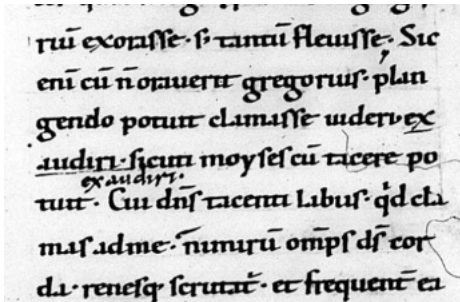 riū exorasse · s; tantū fleuisse · Sic
eni cū n̄ oraverit gregorius · plan
gendo potuit clamasse uideri · ex
audiri · sicuti moyses cū tacere po
exaudiri ·
tuit · Cui dn̄s tacenti labiis · qd cla
mas ad me · n̄ mirū om̄ps ds̄ cor
da · renesq scrutat̄ · et frequent̄ ea